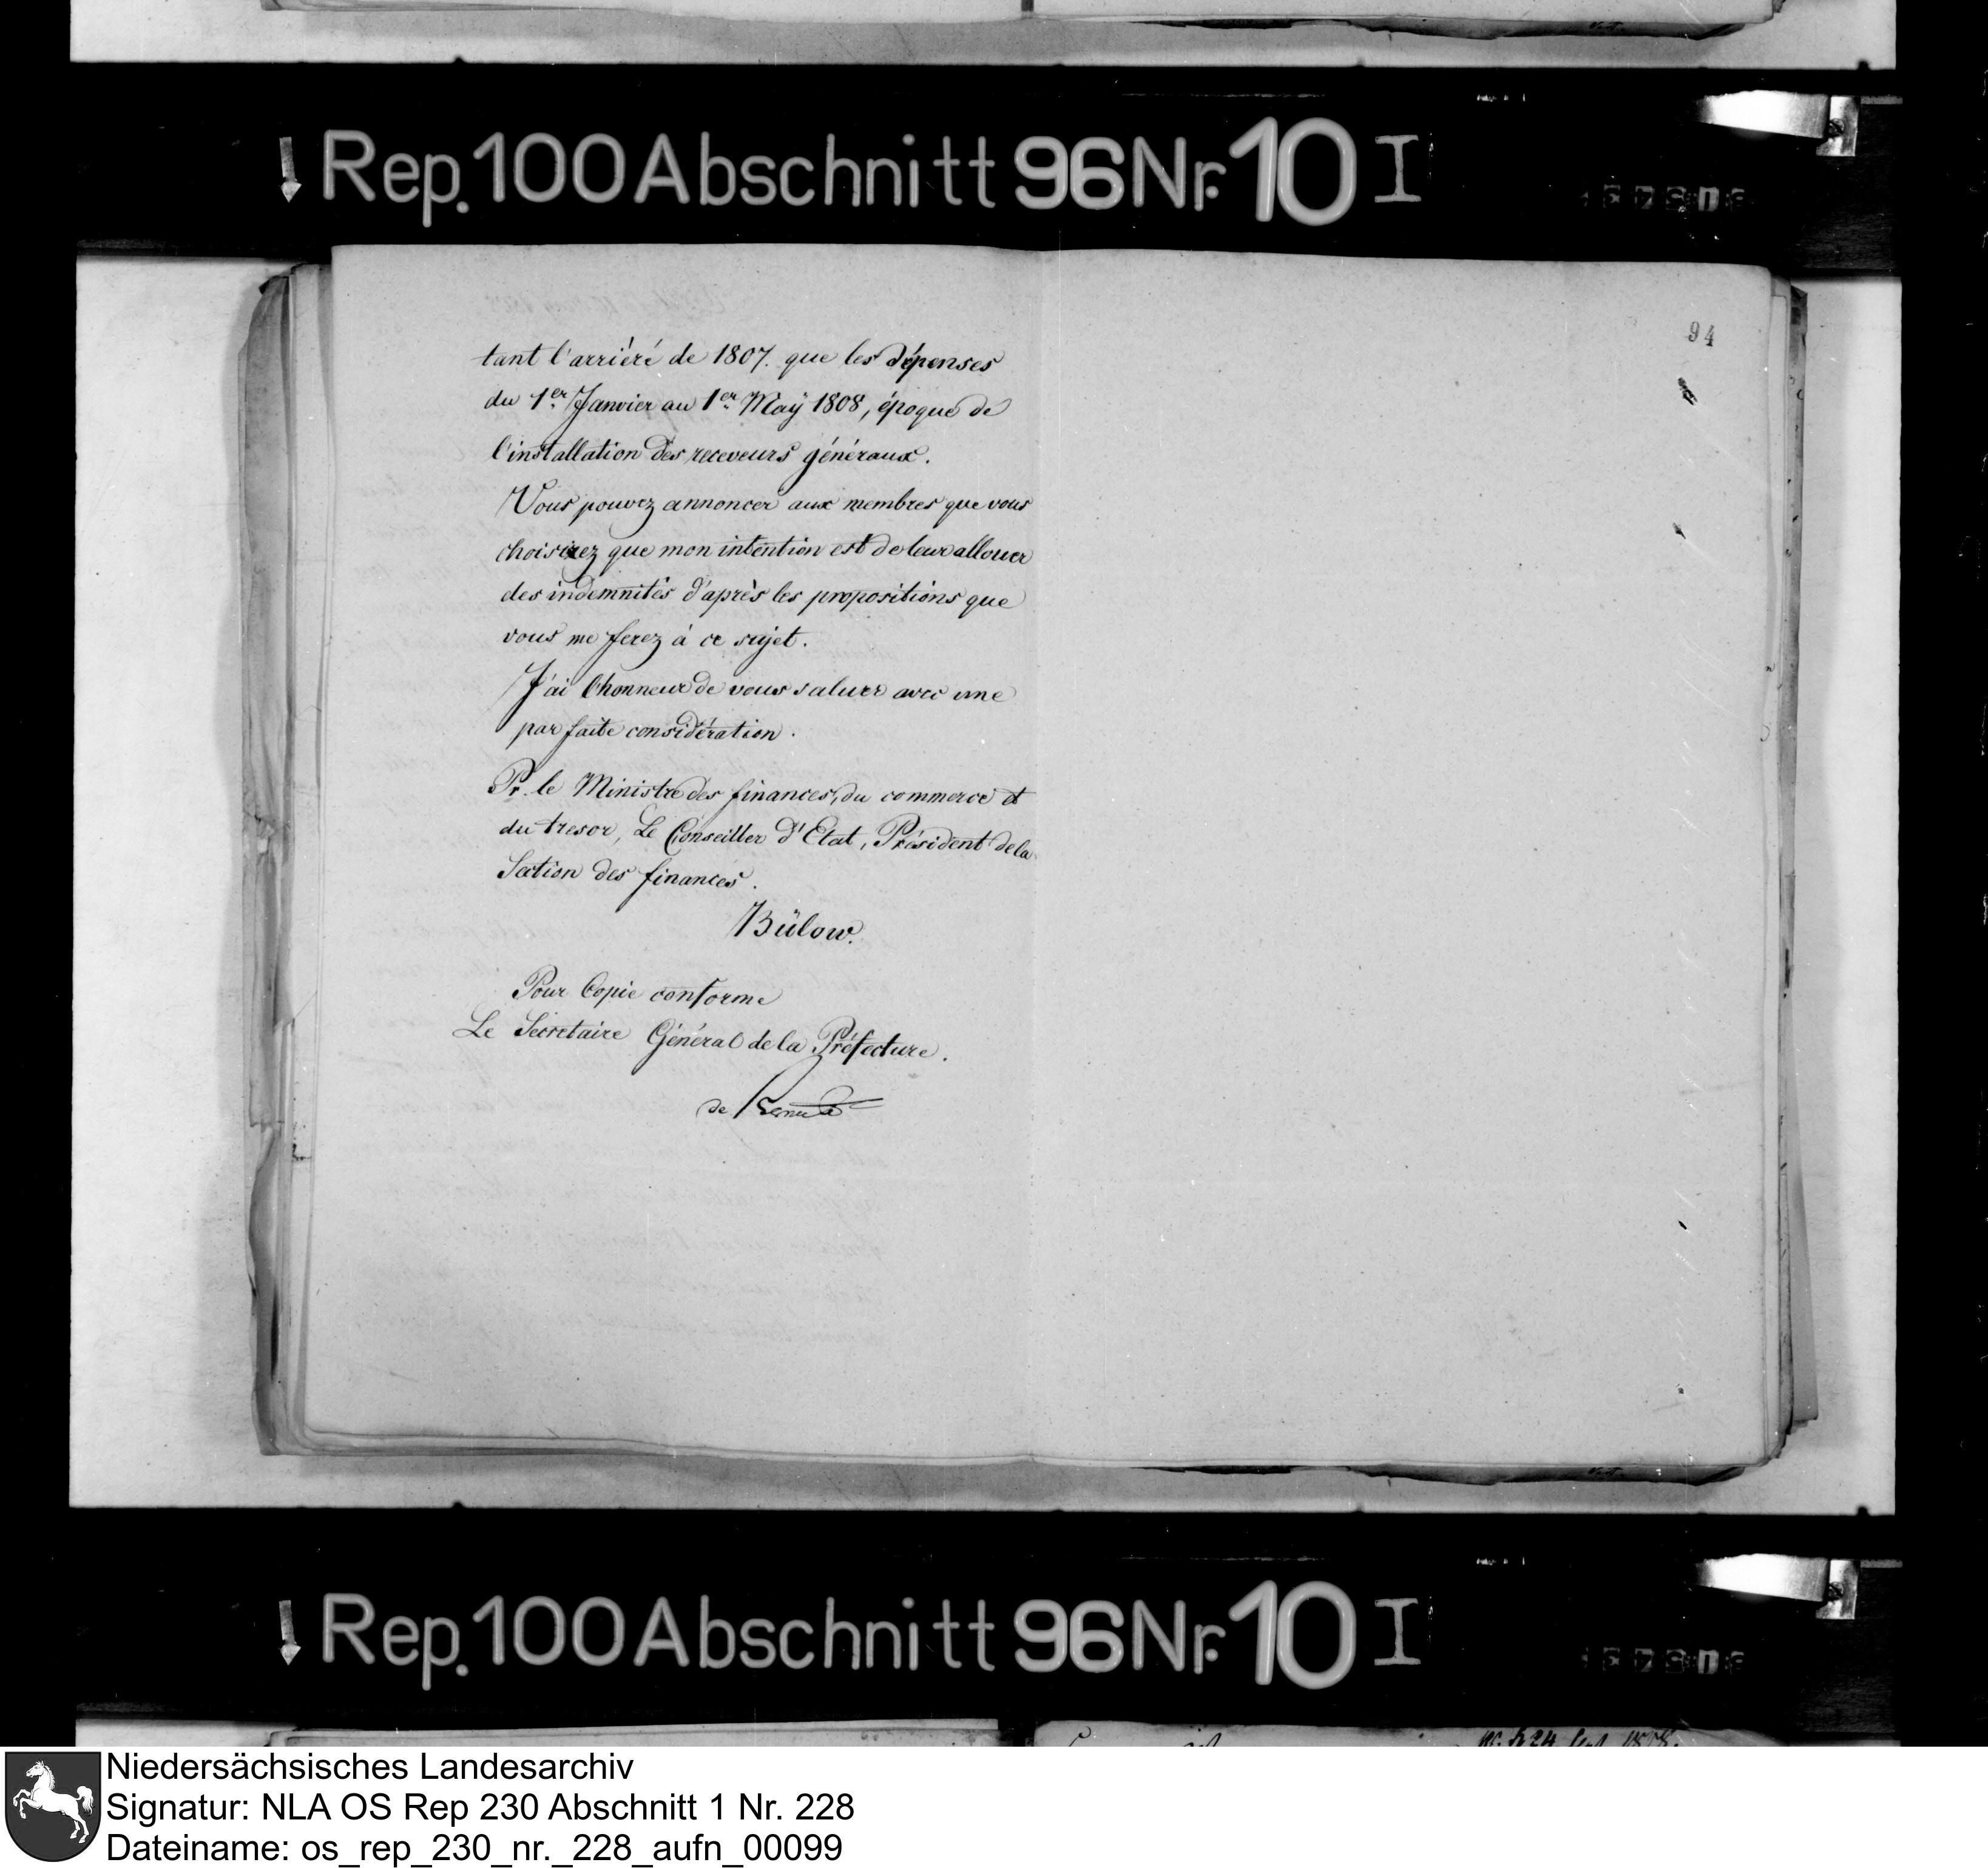 Rep. 100 Abschnitt 96 Nr. 10 I
94
tant l'arriéré de 1807. que les dépenses
du 1.er Janvier au 1.er Maÿ 1808, époque de
l'installation des receveurs généraux.
Vous pouvez annoncer aux membres que vous
choisirez que mon intention est de leur allouer
des indemnités d'après les propositions que
vous me ferez à ce sujet.
J'ai l'honneur de vous saluer avec une
parfaite considération.
Pr. le Ministre des finances, du commerce et
du tresor, Le Conseiller d'Etat, Président de la
Section des finances.
Bülow.
Pour Copie conforme
Le Secretaire Général de la Préfecture.
de
Rep. 100 Abschnitt 96 Nr. 10 I
Niedersächsisches Landesarchiv
Signatur: NLA OS Rep 230 Abschnitt 1 Nr. 228
Dateiname: os_rep_230_nr._228_aufn_00099